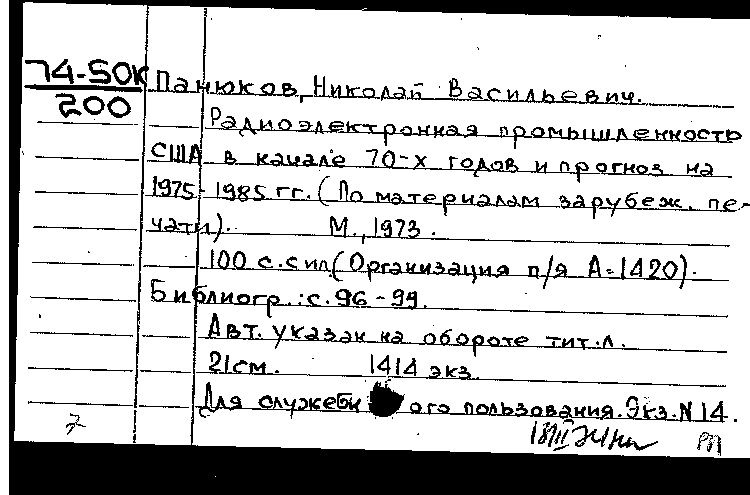 74-50К
200
Панюков, Николай Васильевич.
Радиоэлектронная промышленность
США в начале 70-х годов и прогноз на
1975-1985 гг. (По материалам зарубеж. пе-
чати). М., 1973.
100 с. с ил. (Организация п/я А-1420).
Библиогр.: с. 96-99.
Авт. указан на обороте тит. л.
21 см. 1414 экз.
Для служебн ого пользования. Экз. N 14.